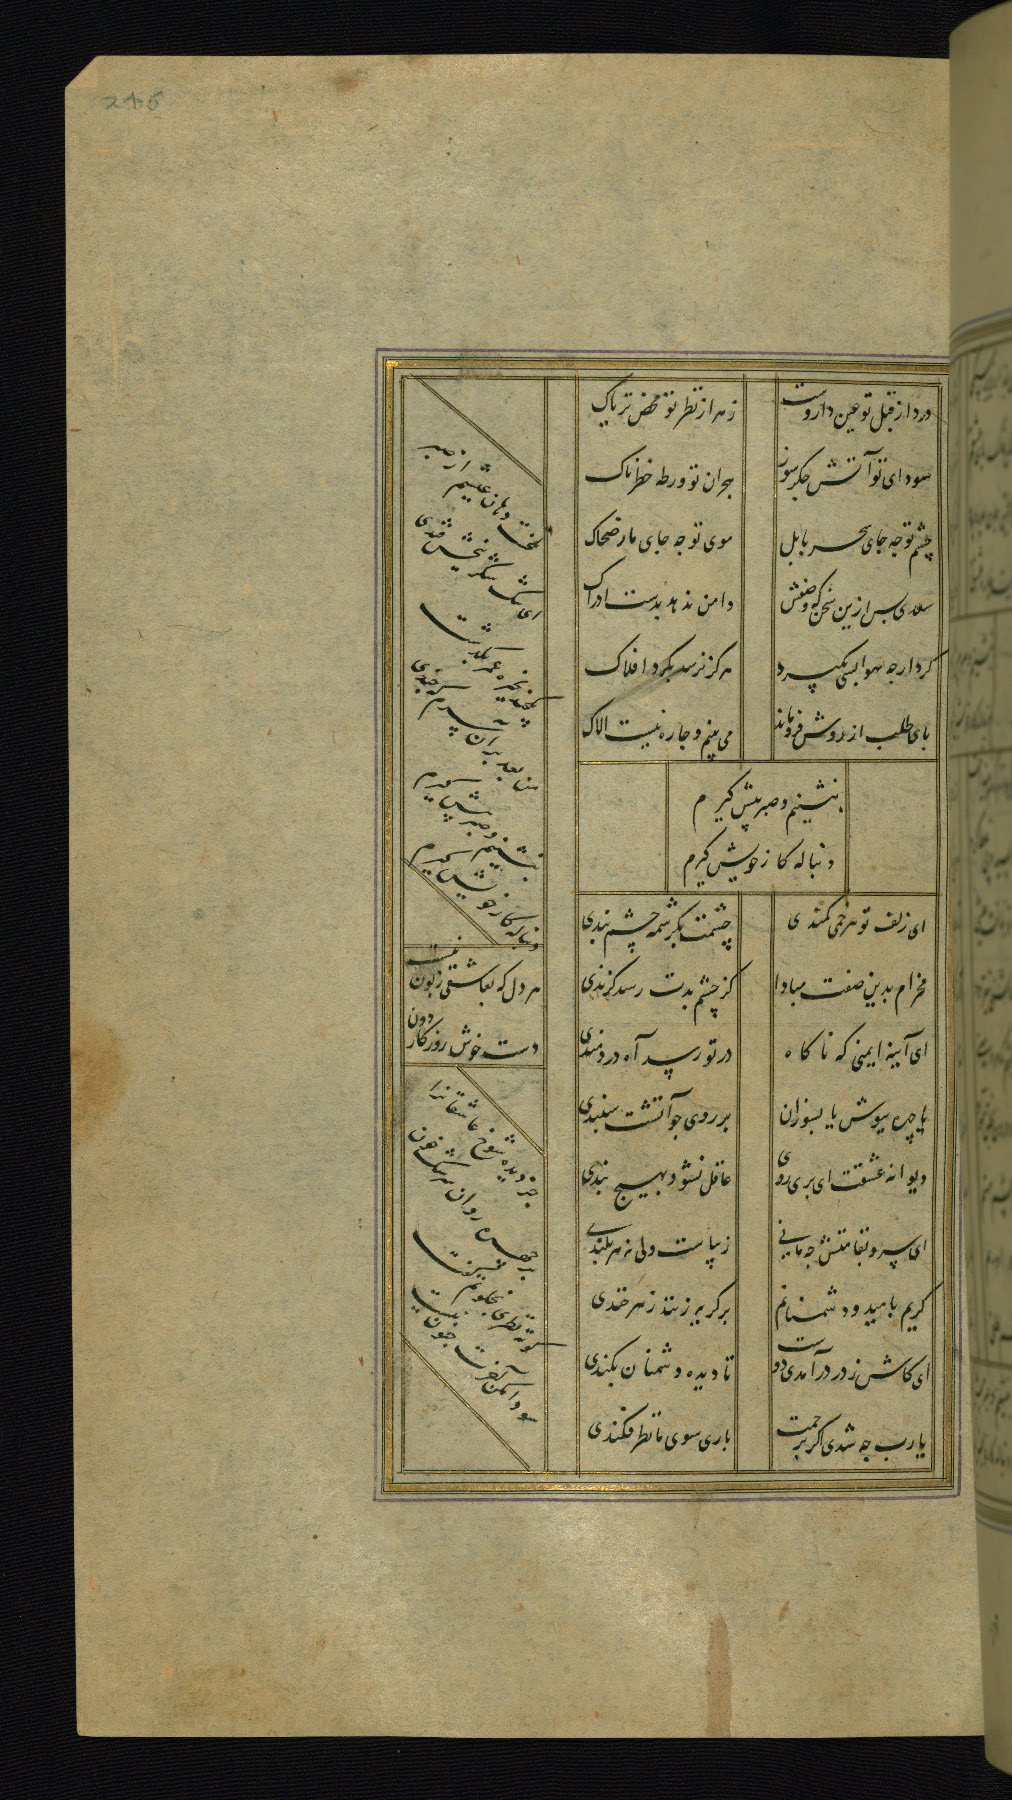 246
درد از قبل تو عین داروست
زهر از نظر تو محض تریاک
سودای تو آتش جگرسوز
هجران تو ورطه خطرناک
چشم تو جه جای سحر بابل
موی تو جه جای مار ضحاک
سعدی بس ازین سخن که وصفش
دامن ندهد بدست ادراک
کرد ارجه بهوا بسی بکیرد
هرکز نرسد بکرد افلاک
بای طلب از روش فروماند
می بینم و جاره نیست الاک
بنشینم و صبر پیش کیرم
دنباله کار خویش کیرم
ای زلف تو هر خمی کمندی
چشمت بکرشمه چشم بندی
مخرام بدین صفت مبادا
کز چشم بدت رسد کزندی
ای آینه ایمنی که ناکاه
در تو رسد آه دردمندی
یا چهره بپوش یا بسوزان
بر روی جو آتشت سپندی
دیوانه عشقت ای بری روی
عاقل نشود بهیچ بندی
ای سرو بقامتش جه مانی
زیباست ولی نه هر بلندی
کریم بامید و دشمنانم
بر کریه زنند زهرخندی
ای کاش ز در درآمدی دوست
تا دیده دشمنان بکندی
یارب جه شدی اکر برحمت
باری سوی ما نظر فکندی
یکجند بخیره عمر بکذشت
من بعد بران سرم که جندی
بنشینم و صبر پیش کیرم
دنباله کار خویش کیرم
هر دل که بعاشقی زبون نیست
دست خوش روزکار دون
جز دیده شوخ عاشقانرا
بر چهره روان سرشک خون
کوته نظری بخلوتم کفت
سودا مکن آخرت جنون نیست